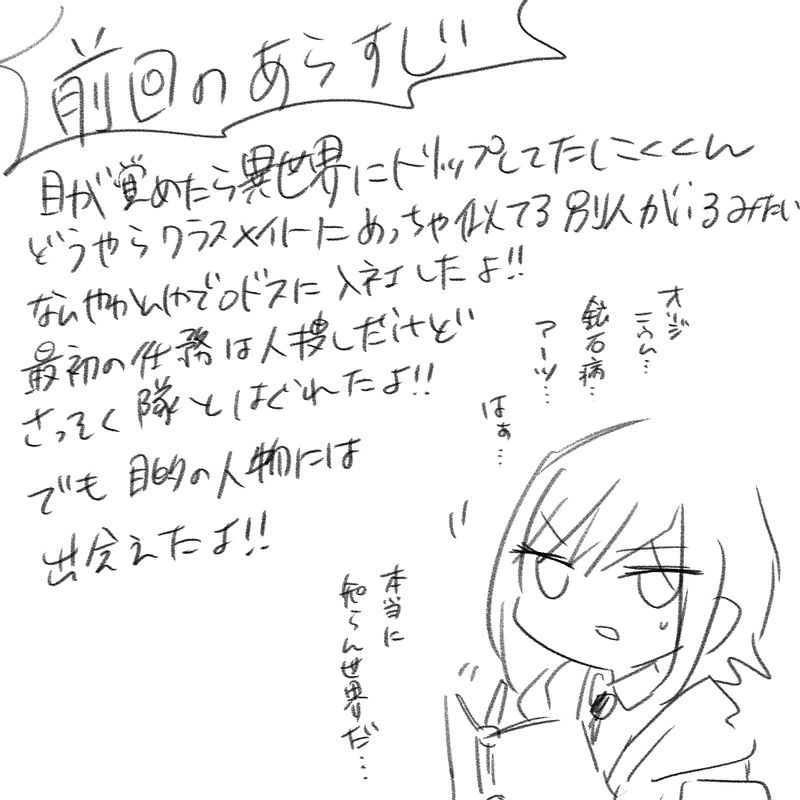 前回のあらすじ
目が覚めたら異世界にドリップしてたしこくくん
どうやらクラスメイトにめっちゃ似てる別人がいるみたい
なんやかんやでロドスに入社したよ!!
最初の任務は人捜しだけど
さっそく隊とはぐれたよ!!
でも目的の人物には
出会えたよ!!
オリジ
ニウム…
鉱石病…
アーツ…
はぁ…
本当に
知らん世界だ…